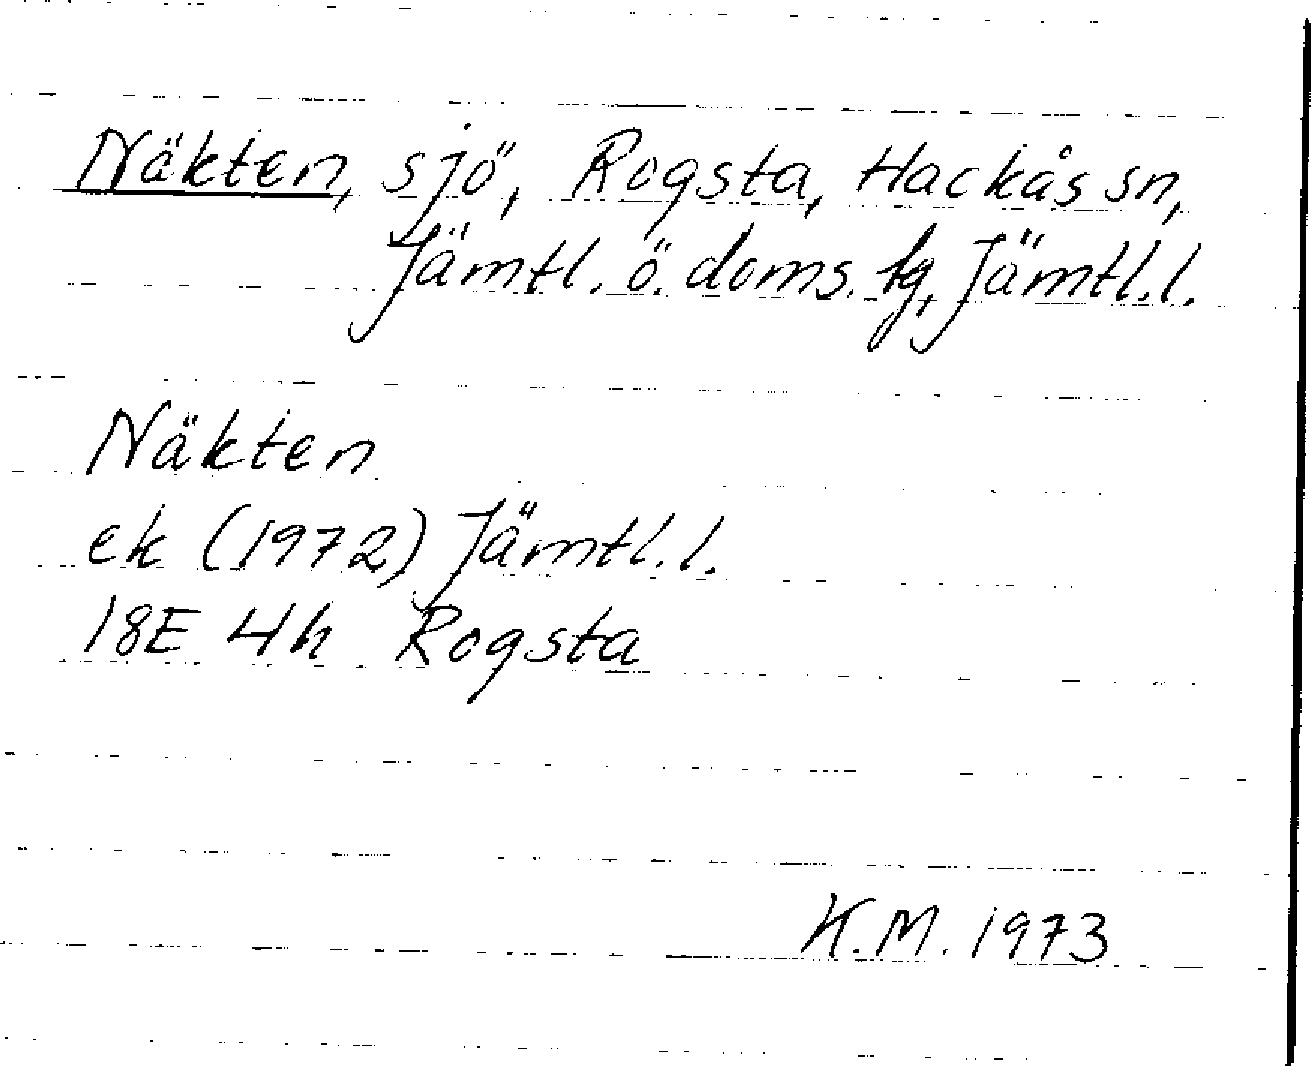 Näkten, sjö, Rogsta, Hackås sn,
Jämtl. ö. doms. fg, Jämtl.l.
Näkten
ek (1972) Jämtl.l.
18E 4h Rogsta
K.M. 1973